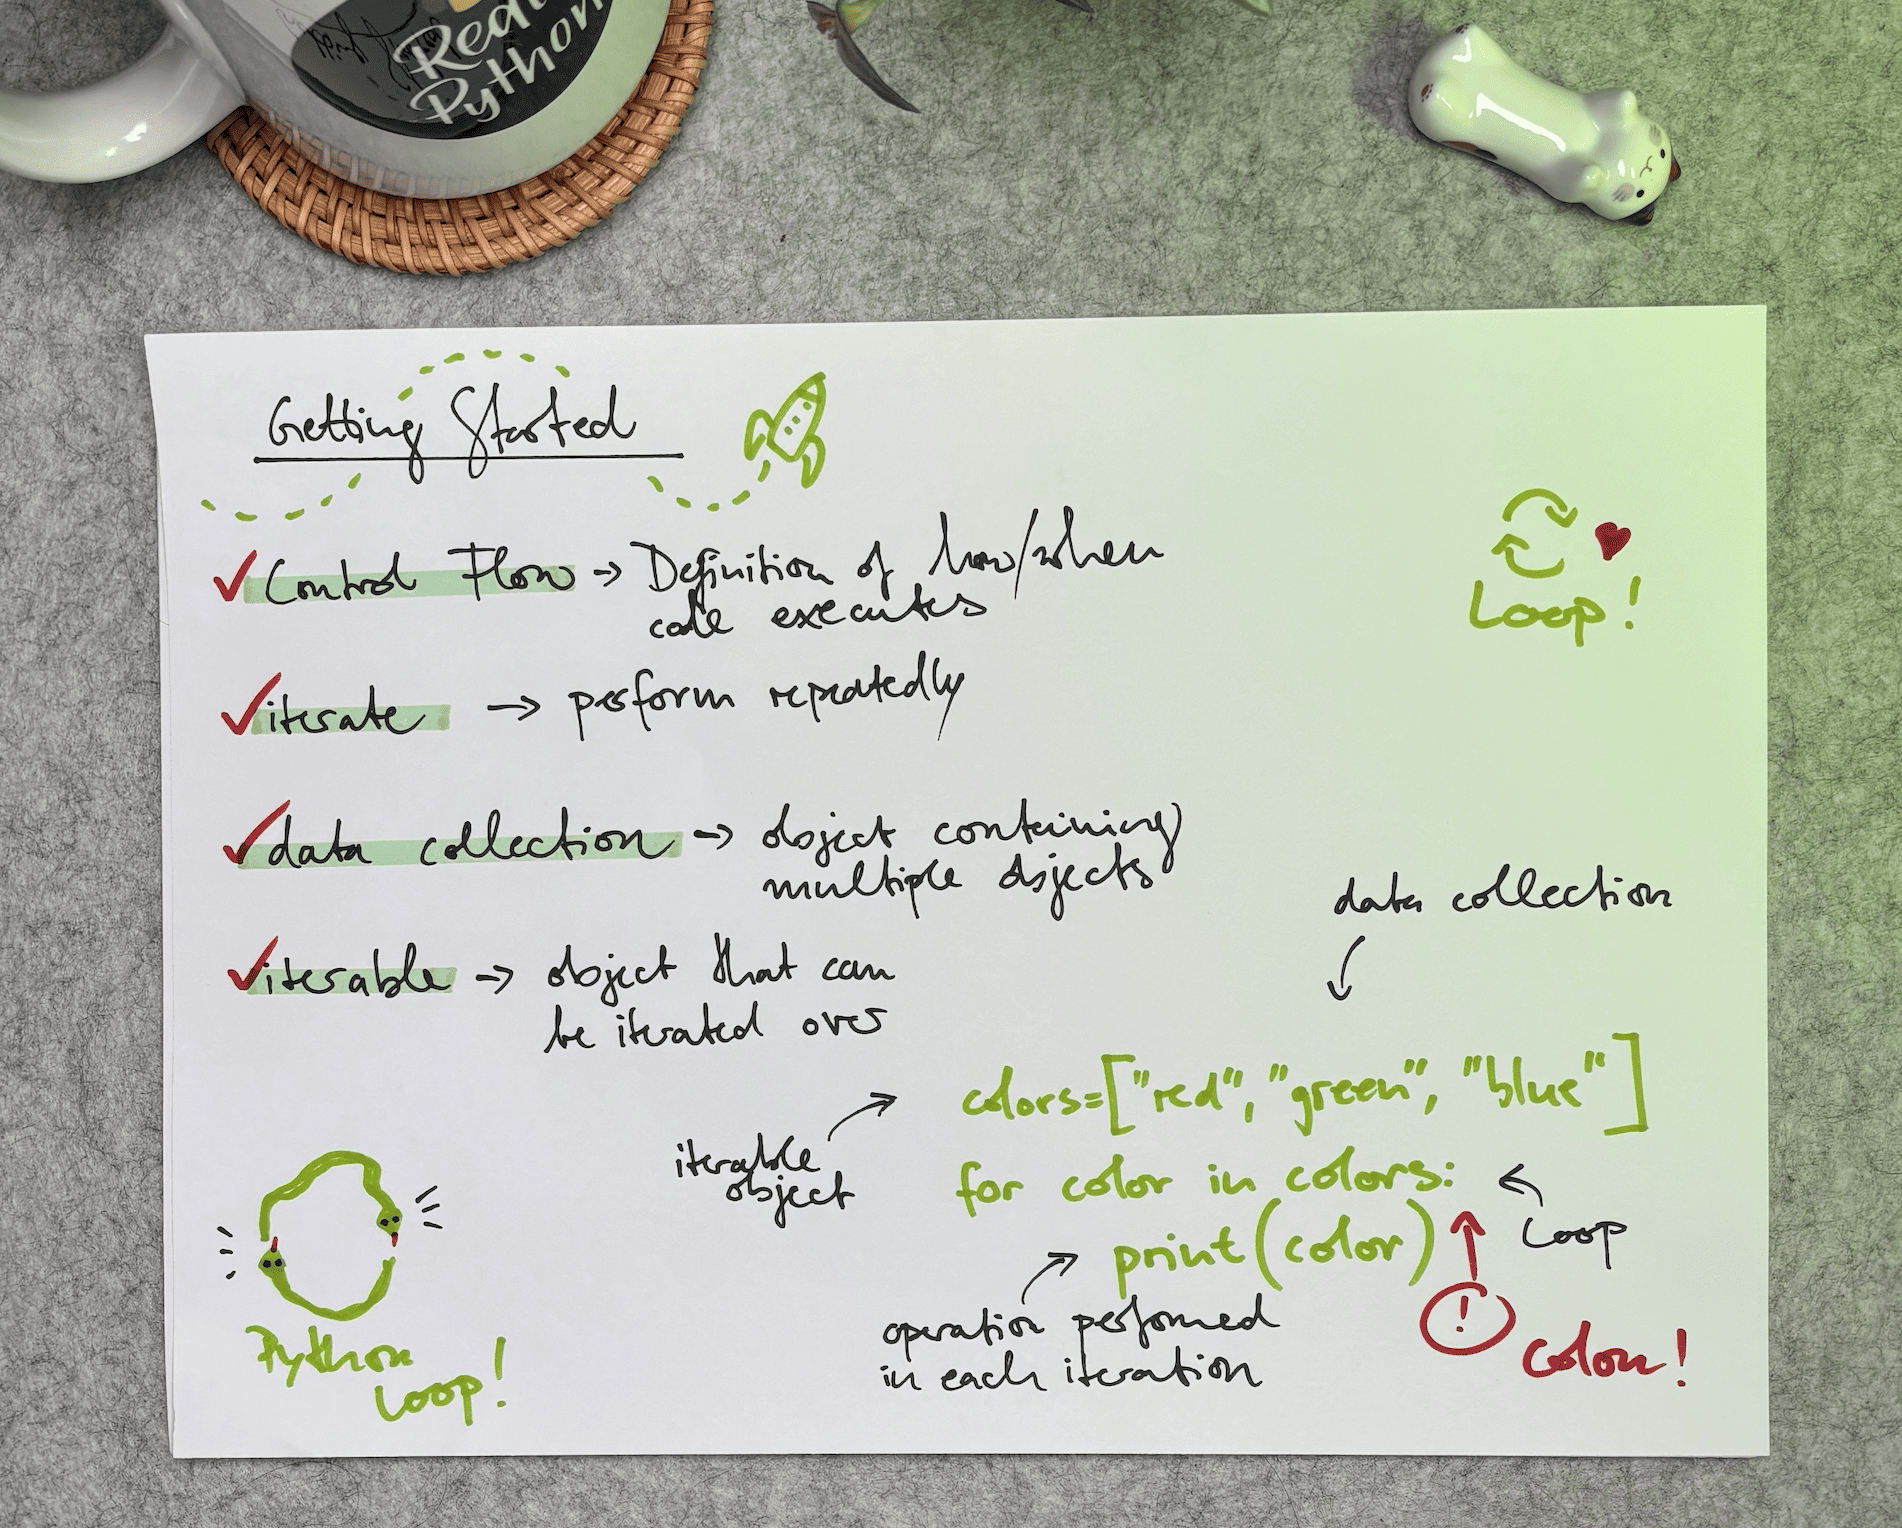 Real
Python
Getting Started
Control Flow → Definition of how/when
code executes
Loop!
iterate → perform repeatedly
data collection → object containing
multiple objects
iterable → object that can
be iterated over
data collection
colors=["red", "green", "blue"]
iterable
object
for color in colors:
print(color)
Loop
operation performed
in each iteration
! colon!
Python
Loop!